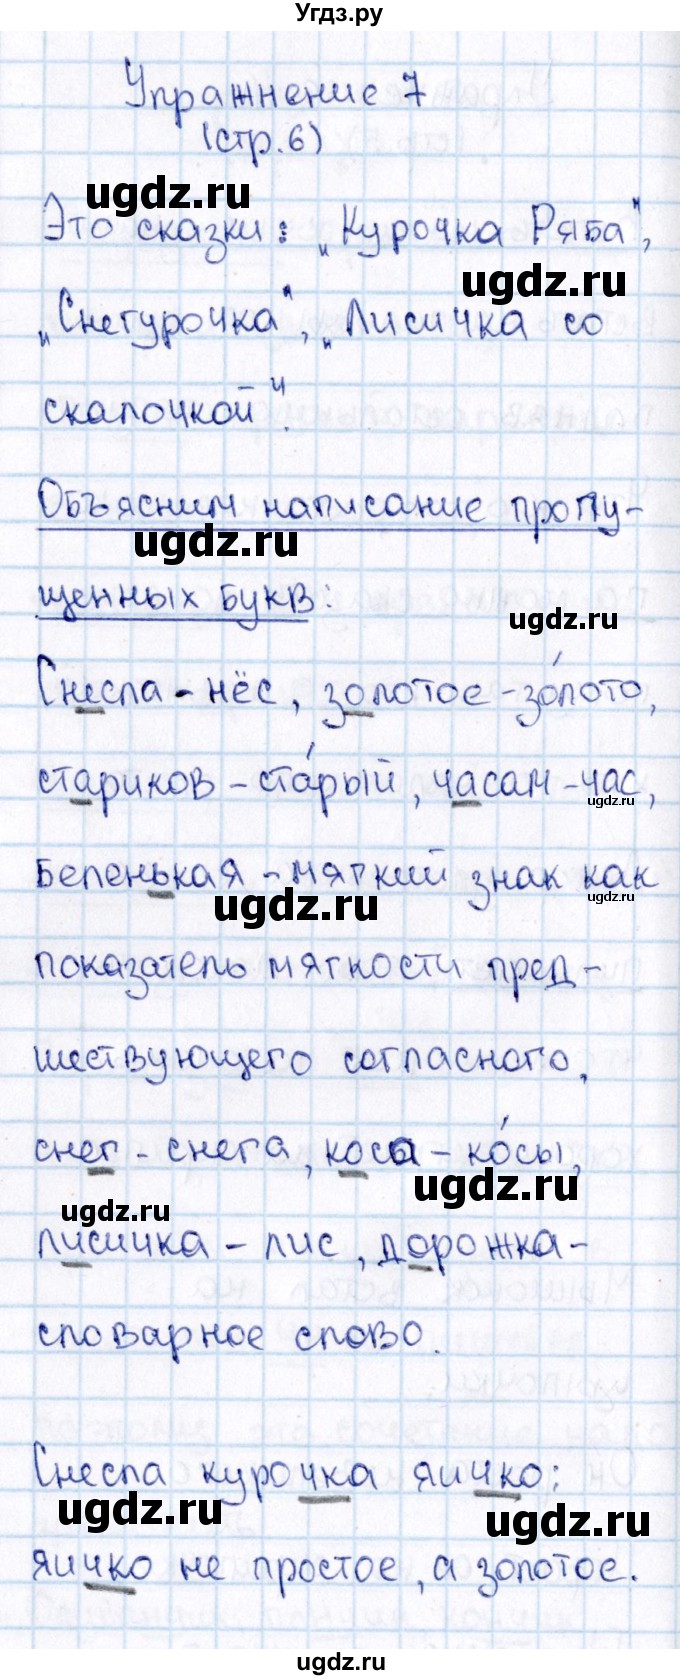 Угдз.ру
Упражнение 7
(стр.6)
ugdz.ru
Это сказки: „Курочка Ряба",
ugdz.ru
„Снегурочка", „Лисичка со
скалочкой".
Объясним написание пропу-
ugdz.ru
щенных букв:
ugdz.ru
Снесла - нёс, золотое - зо́лото,
стариков - ста́рый, часам - час,
ugdz.ru
Беленькая - мягкий знак как
ugdz.ru
ugdz.ru
показатель мягкости пред-
шествующего согласного,
снег - снега, коса - ко́сы,
ugdz.ru
ugdz.ru
лисичка - лис, дорожка -
словарное слово.
Снесла курочка яичко:
ugdz.ru
ugdz.ru
яичко не простое, а золотое.
ugdz.ru
ugdz.ru